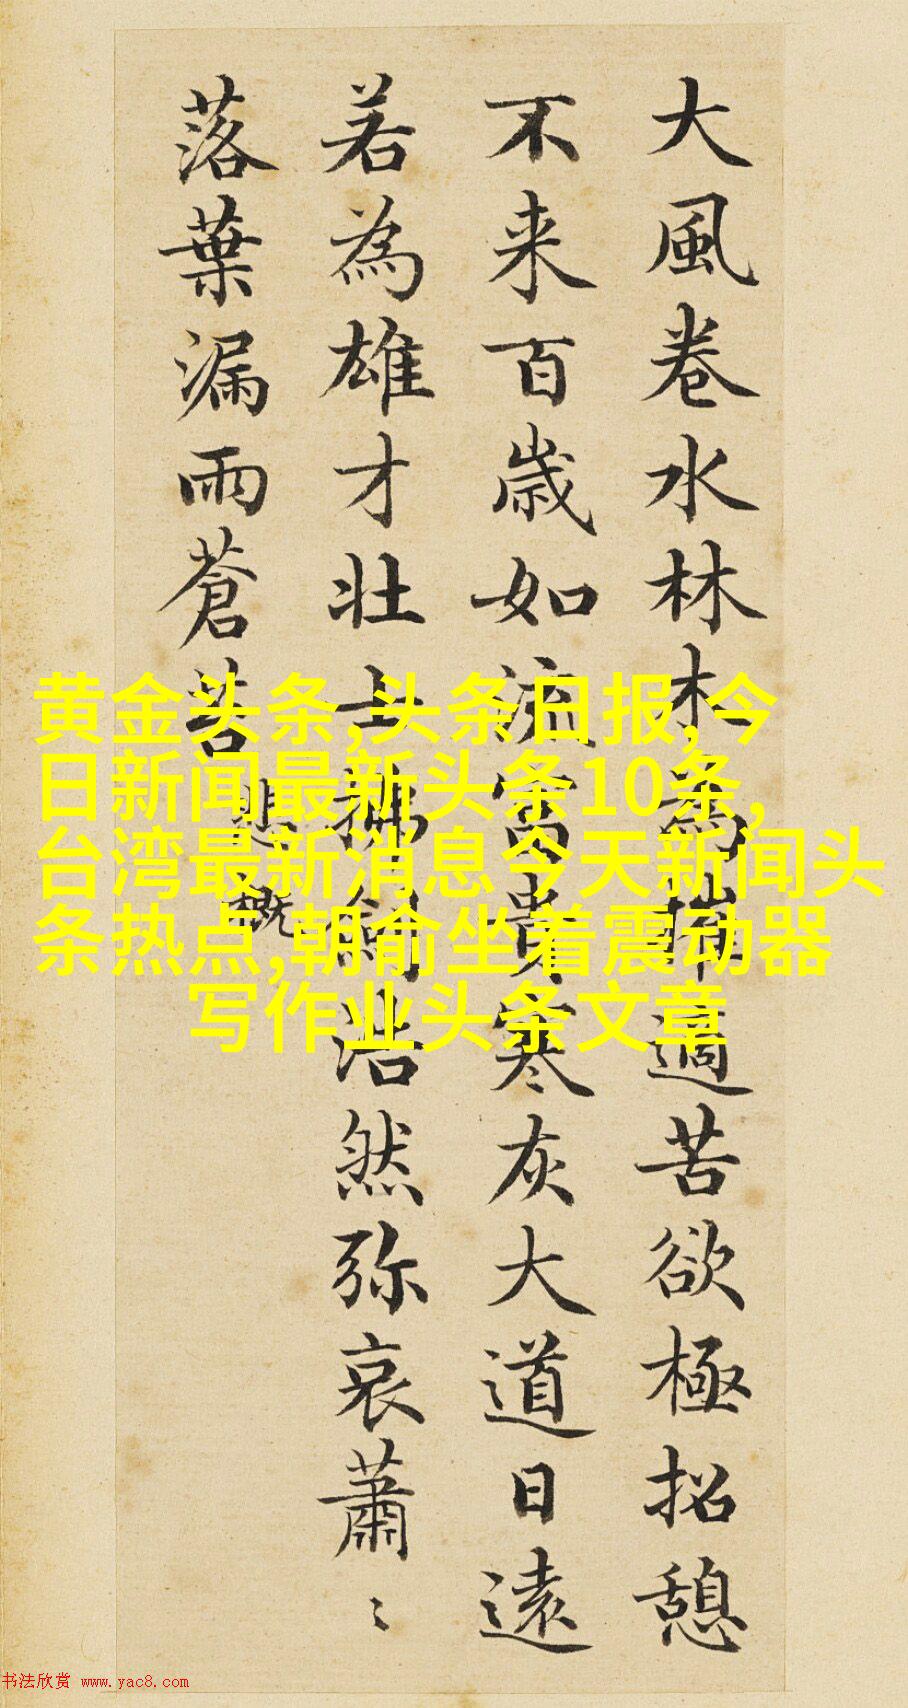 大風卷水林木為摧適苦欲極招憩
不来百歲如流富貴寒灰大道日遠
若為雄才壮士拂劒浩然弥哀蕭〻
落葉漏雨蒼苔
悲概
黄金头条,头条日报,今
日新闻最新头条10条,
台湾最新消息今天新闻头
条热点,朝俞坐着震动器
写作业头条文章
书法欣赏 www.yac8.com